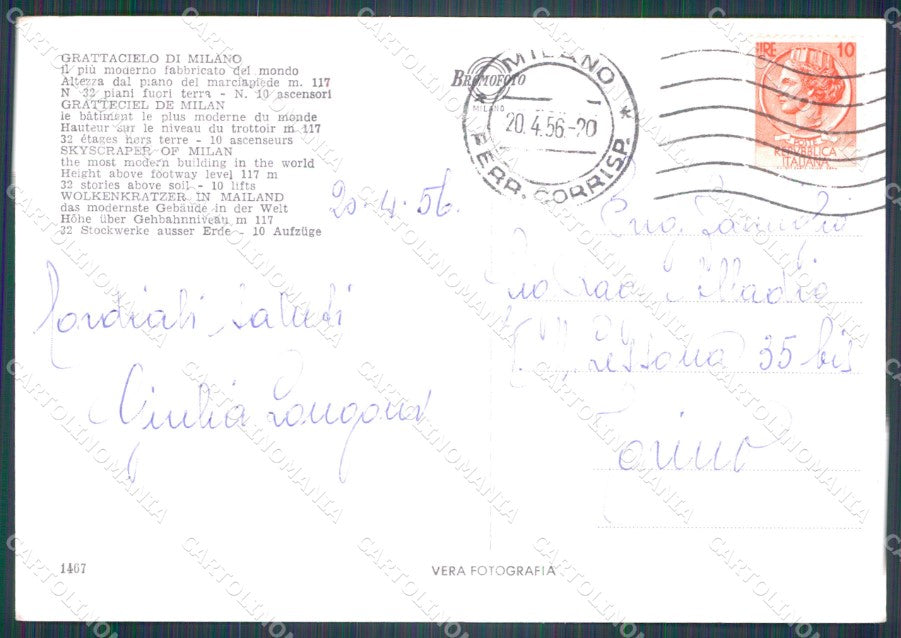 GRATTACIELO DI MILANO
il più moderno fabbricato del mondo
Altezza dal piano del marciapiede m. 117
N 32 piani fuori terra - N. 10 ascensori
GRATTECIEL DE MILAN
le bâtiment le plus moderne du monde
Hauteur sur le niveau du trottoir m 117
32 étages hors terre - 10 ascenseurs
SKYSCRAPER OF MILAN
the most modern building in the world
Height above footway level 117 m
32 stories above soil - 10 lifts
WOLKENKRATZER IN MAILAND
das modernste Gebäude in der Welt
Höhe über Gehbahnniveau m 117
32 Stockwerke ausser Erde - 10 Aufzüge
20.4.56.
Cordiali saluti
Giulia Longoni
1467
BROMOFOTO
MILANO
VERA FOTOGRAFIA
MILANO
20.4.56-20
FERR. CORRISP.
LIRE 10
POSTE
REPUBBLICA
ITALIANA
Lessona 35 bis
Torino
CARTOLINOMANIA